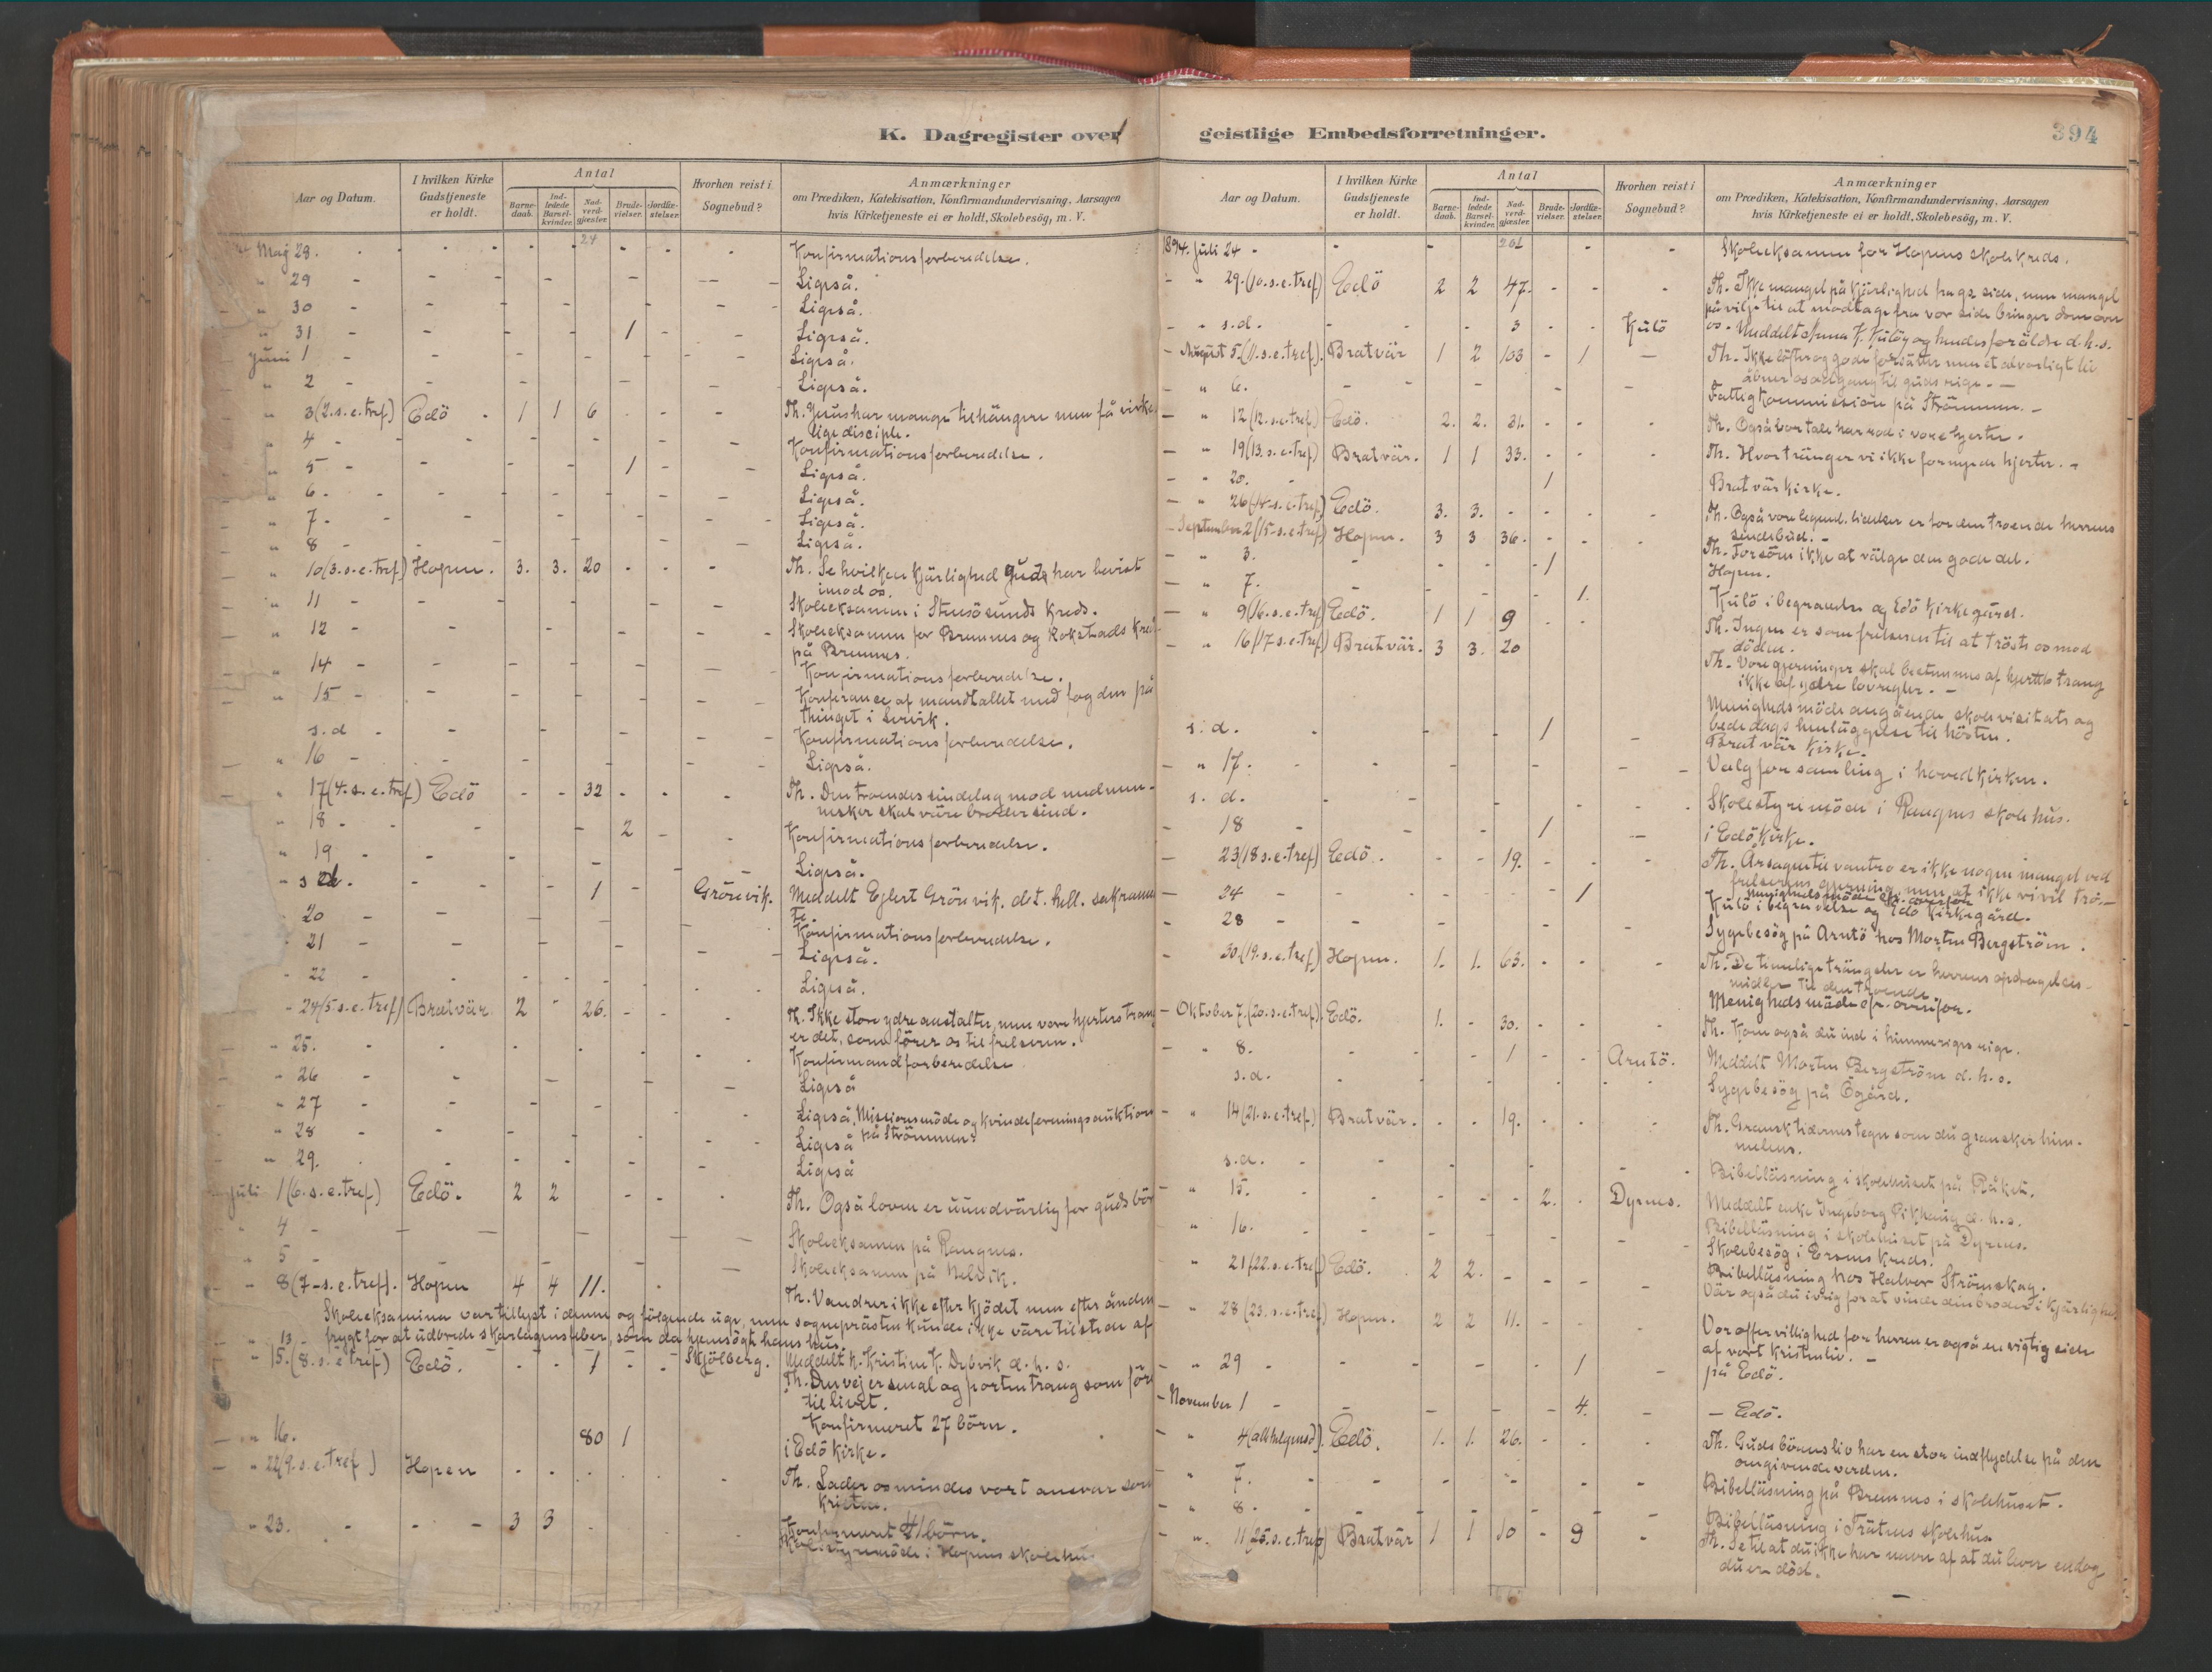 K. Dagregister over
Aar og Datum.
I hvilken Kirke Gudstjeneste er holdt.
Antal
Barne-daab.
Ind-ledede Barsel-kvinder.
Nad-verd-gjæster.
Brude-vielser.
Jordfæ-stelser.
Hvorhen reist i Sognebud?
Anmærkninger
om Prædiken, Katekisation, Konfirmandundervisning, Aarsagen
hvis Kirketjeneste ei er holdt, Skolebesög, m. V.
24
Maj 28. - - - - - - - Konfirmationsforberedelse.
" 29 - - - - - - - Ligeså.
" 30 - - - - - - Ligeså.
" 31 - - - - 1 - - Ligeså.
Juni 1 - - - - - - - Ligeså.
" 2 - - - - - - - Ligeså.
" 3 (2. s. e. tref.) Edö - 1 1 6 - - - Th. Jesus har mange tilhängere men få virke
lige disciple.
" 4 - - - - - - Konfirmationsforberedelse.
" 5 - - - - 1 - - Ligeså.
" 6 - - - - - - - Ligeså.
" 7 - - - - - - - Ligeså.
" 8 - - - - - - - Ligeså.
" 10 (3. s. e. tref.) Hopen. 3. 3. 20 - - - Th. Se hvilken kjärlighed Gud har bevist
imod os.
" 11 - - - - - - Skoleeksamen i Stensösunds kreds.
" 12 - - - - - - Skoleeksamen for Bremnes og Rokstads kreds
på Bremnes.
" 14 - - - - - - Konfirmationsforberedelse.
" 15 - - - - - - Konferance af mandtallet med fogden på
thinget i Leirvik.
s. d - - - - - - Konfirmationsforberedelse.
" 16 - - - - - - Ligeså.
" 17 (4. s. e. tref) Edö - - 32 - - - Th. Den troendes sindelag mod medmen-
nesker skal väre brodersind.
" 18 - - - 2 - - Konfirmationsforberedelse.
" 19 - - - - - - Ligeså.
" s d. - - - 1 - Grönevik. Meddelt Eglert Grönevik. d. t. hell. sakramen
te.
20 - - - - - - Konfirmationsforberedelse.
" 21 - - - - - - Ligeså.
" 22 - - - - - - Ligeså.
" 24 (5. s. e. tref) Bratvär 2 " 26. - - - Th. Ikke store ydre anstalter, men vore hjerters trang
er det, som förer os til frelseren.
" 25. - - - - - - Konfirmandforberedelse
" 26 - - - - - - Ligeså
" 27 - - - - - - Ligeså, Missionsmöde og kvindeforeningsauktion
på Strömmen.
" 28 - - - - - - Ligeså
" 29. - - - - - - Ligeså
Juli 1 (6. s. e. tref) Edö. 2 2 - - - Th. Også loven er uundvärlig for guds börn
" 4 - - - - - - Skoleeksamen på Rangnes.
" 5 - - - - - Skoleeksamen på Nelvik.
" 8 (7 - s. e. tref). Hopen 4 4 11. - Th. Vandrer ikke efter kjödet men efter ånden
Skoleeksamina var tillyst i denne og fölgende uge, men sogneprästen kunde ikke väre tilstede af
" 13 - frygt for at udbrede skarlagensfeber, som da hjemsögte hans hus.
" 15. (8. s. e tref) Edö. - - 1 - - Skjölberg. Meddelt K. Kristine K. Dybvik d. h. s.
Th. Den vej er smal og porten trang som förer
til livet.
Konfirmeret 27 börn.
" 16. 80 1 i Edö kirke.
" 22 (9. s. e. tref) Hopen - - - Th. Lader os mindes vort ansvar som
kristne.
" 23. - - - 3 3 - - Konfirmeret 41 börn.
Skolestyremöde i Hopens skolehus
geistlige Embedsforretninger.
394
Aar og Datum.
I hvilken Kirke Gudstjeneste er holdt.
Antal
Barne-daab.
Ind-ledede Barsel-kvinder.
Nad-verd-gjæster.
Brude-vielser.
Jordfæ-stelser.
Hvorhen reist i Sognebud?
Anmærkninger
om Prædiken, Katekisation, Konfirmandundervisning, Aarsagen
hvis Kirketjeneste ei er holdt, Skolebesög, m. V.
201
1894. Juli 24 - - - - - Skoleeksamen for Hopens skolekreds.
" 29. (10. s. e. tref) Edö 2 2 47. - - - Th. Ikke mangel på kjärlighed fra gs side, men mangel
på vilje til at modtage fra vor side bringer dom over
- " s. d. - - - 3 - - Kulö os. - Meddelt Anna K. Kulöy og hendes forälder d. h. s.
- August 5. (11. s. e. tref). Bratvär 1 2 103 - 1 - Th. Ikke löfter og gode forsätter men et alvorligt liv
åbner os adgang til guds rige. -
" 6. - - - - - Fattigkommission på Strömmen. -
" 12 (12. s. e. tref) Edö. 2. 2. 31. - - - Th. Også vor tale har rod i vore hjerter.
- " 19 (13. s. e. tref) Bratvär. 1 1 33. - - - Th. Hvor tränger vi ikke fornyede hjerter. -
- " 20. - 1 Bratvär kirke.
- " 26 (14. s. e. tref) Edö. 3. 3. - - - - Th. Også vore legeml. lidelser er for den troende herrens
sendebud. -
- September 2 (15. s. e. tref) Hopen. 3 3 36. - - - Th. Forsöm ikke at välge den gode del.
- " 3. - - - - 1 Hopen.
- " 7. - - - - 1. Kulö i begravelse og Edö kirkegård.
- " 9 (16. s. e. tref) Edö. 1 1 9 - - Th. Ingen er som frelseren til at tröste os mod
döden.
- " 16 (17. s. e. tref) Bratvär. 3 3. 20 Th. Vore gjerninger skal bestemmes af hjertets trang
ikke af ydre lovregler. -
Menighedsmöde angående skolevisitats og
bededags henläggelse til hösten.
s. d. - - - 1 - Bratvär kirke.
" 17. - - - - - - Valgforsamling i hovedkirken.
s. d. - - - - - Skolestyremöde i Rangnes skolehus.
" 18 - - - 1 - i Edö kirke.
- 23 (18 s. e. tref) Edö. - - 19. - - - Th. Årsagen til vantro er ikke nogen mangel ved
frelserens gjerning, men at ikke vi vil tro. -
Menighedsmöde efr. ovenfor
- 24 - - - - - 1 Kulö i begravelse og Edö kirkegård.
- 28 - - - - - - Sygebesög på Arntö hos Morten Bergström.
- 30. (19. s. e. tref) Hopen. 1. 1. 63. - - - Th. De timelige trängsler er herrens opdragelses-
midler til den troende.
Menighedsmöde efr. ovenfor.
- Oktober 7. (20. s. e. tref). Edö. 1. - 30. - - - Th. Kom også du ind i himmeriges rige.
- " 8. - - - 1 - - Arntö. Meddelt Morten Bergström d. h. s.
s. d. - - - - - Sygebesög på Ögård.
- " 14 (21. s. e. tref) Bratvär. - - 19. - - - Th. Gransk tidernes tegn som du gransker him-
melens.
s. d. - - - - - - Bibelläsning i skolehuset på Råket.
- " 15. - - - - 2. - Dyrnes. Meddelt enke Ingeborg Pikhaug d. h. s.
Bibelläsning i skolehuset på Dyrnes.
" 16. - - - - - - Skolebesög i Ersnes kreds.
Bibelläsning hos Halvor Strömskag.
" 21 (22. s. e. tref) Edö. 2 2. - - - - Vär også du ivrig for at vinde din broder i kjärlighed.
- " 28 (23. s. e. tref) Hopen. 2 2 11. - - - Vor offervillighed for herren er også en vigtig side
af vort kristenliv. -
- " 29 - - - - - 1 - på Edö.
- November 1 - - - - - 4. - - Edö.
" 4 (allehelgensd). Edö. 1. 1. 26. - - - Th. Guds börns liv har en stor indflydelse på den
omgivende verden.
- " 7. - - - - - - Bibelläsning på Bremnes i skolehuset.
- " 8. - - - - - - Bibelläsning i Trätnes skolehus
- " 11 (25. s. e. tref) Bratvär 1 1 10 - 9 - Th. Se til at du ikke har navn af at du lever endog
du er död.